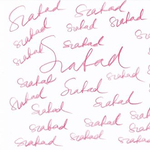 Szabad Szabad Szabad
Szabad Szabad Szabad
Szabad Szabad
Szabad Szabad
Szabad Szabad Szabad
Szabad Szabad Szabad
Szabad Szabad Szabad
Szabad Szabad Szabad